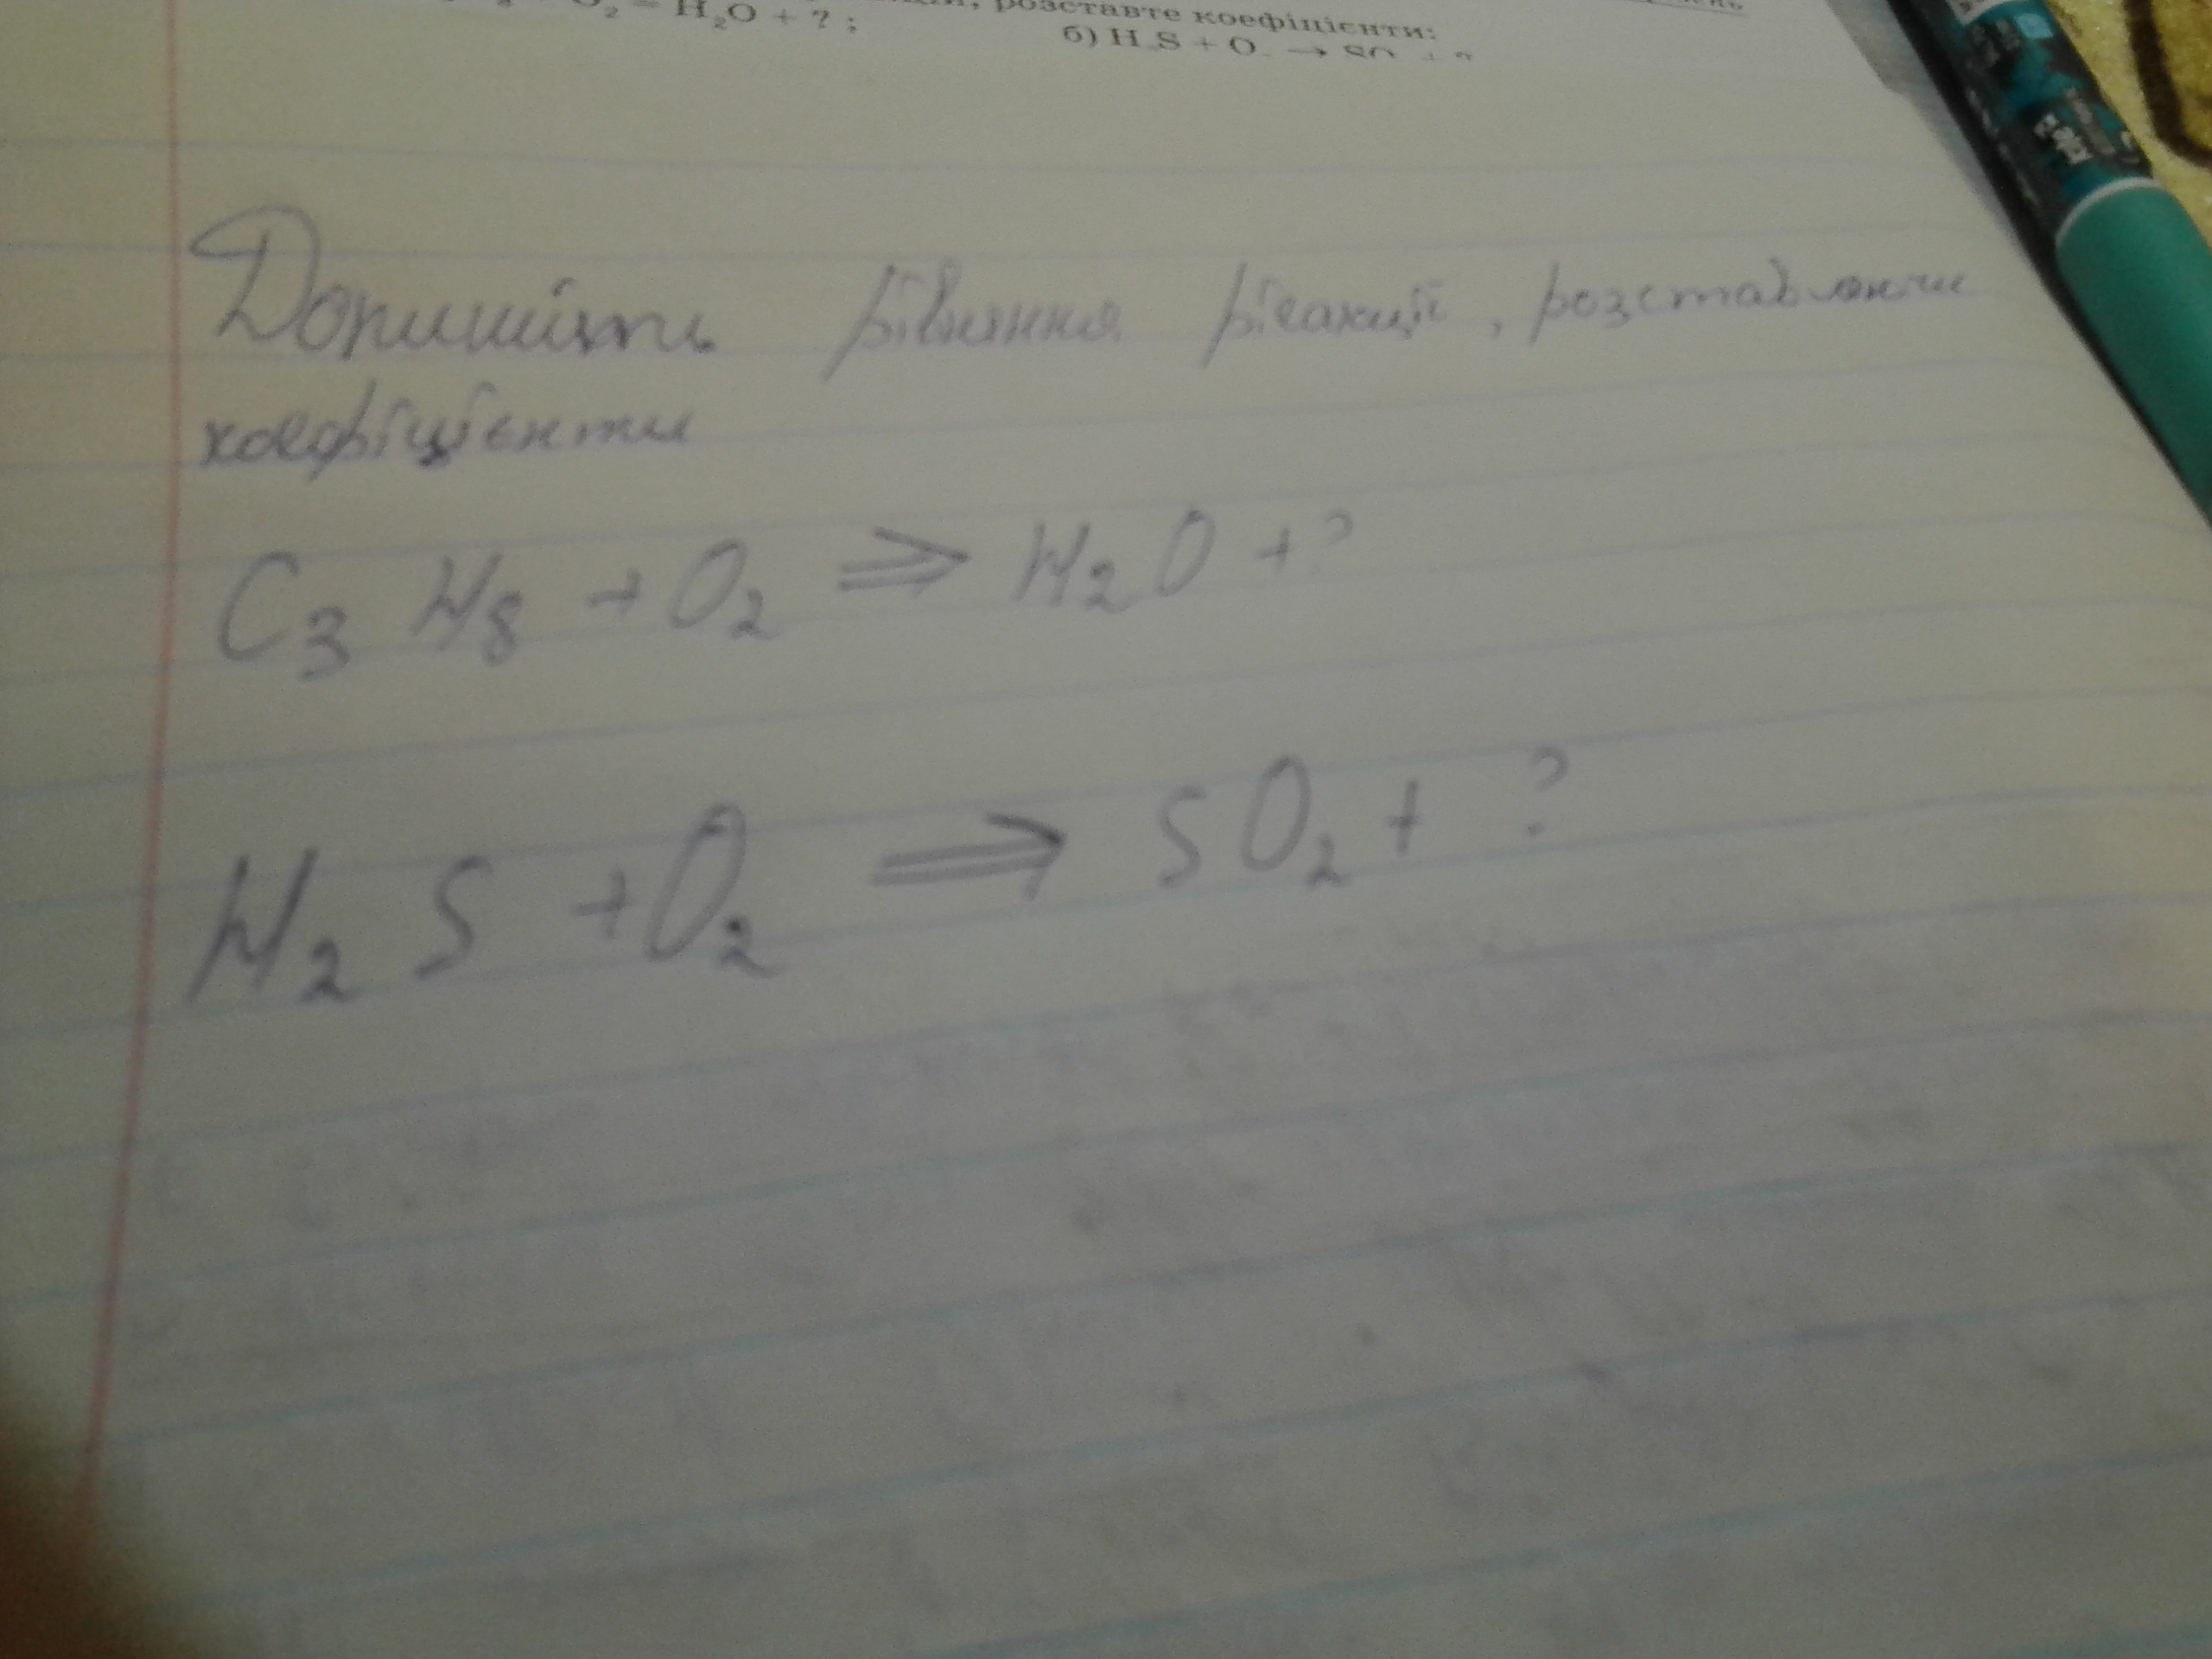 розставте коефіцієнти:
O₂ = H₂O + ? ;
б) H₂S + O₂ → SO₂ + ?
Допишіть рівняння реакції, розставляючи
коефіцієнти
C₃ H₈ + O₂ ⇒ H₂O + ?
H₂ S + O₂ ⇒ SO₂ + ?